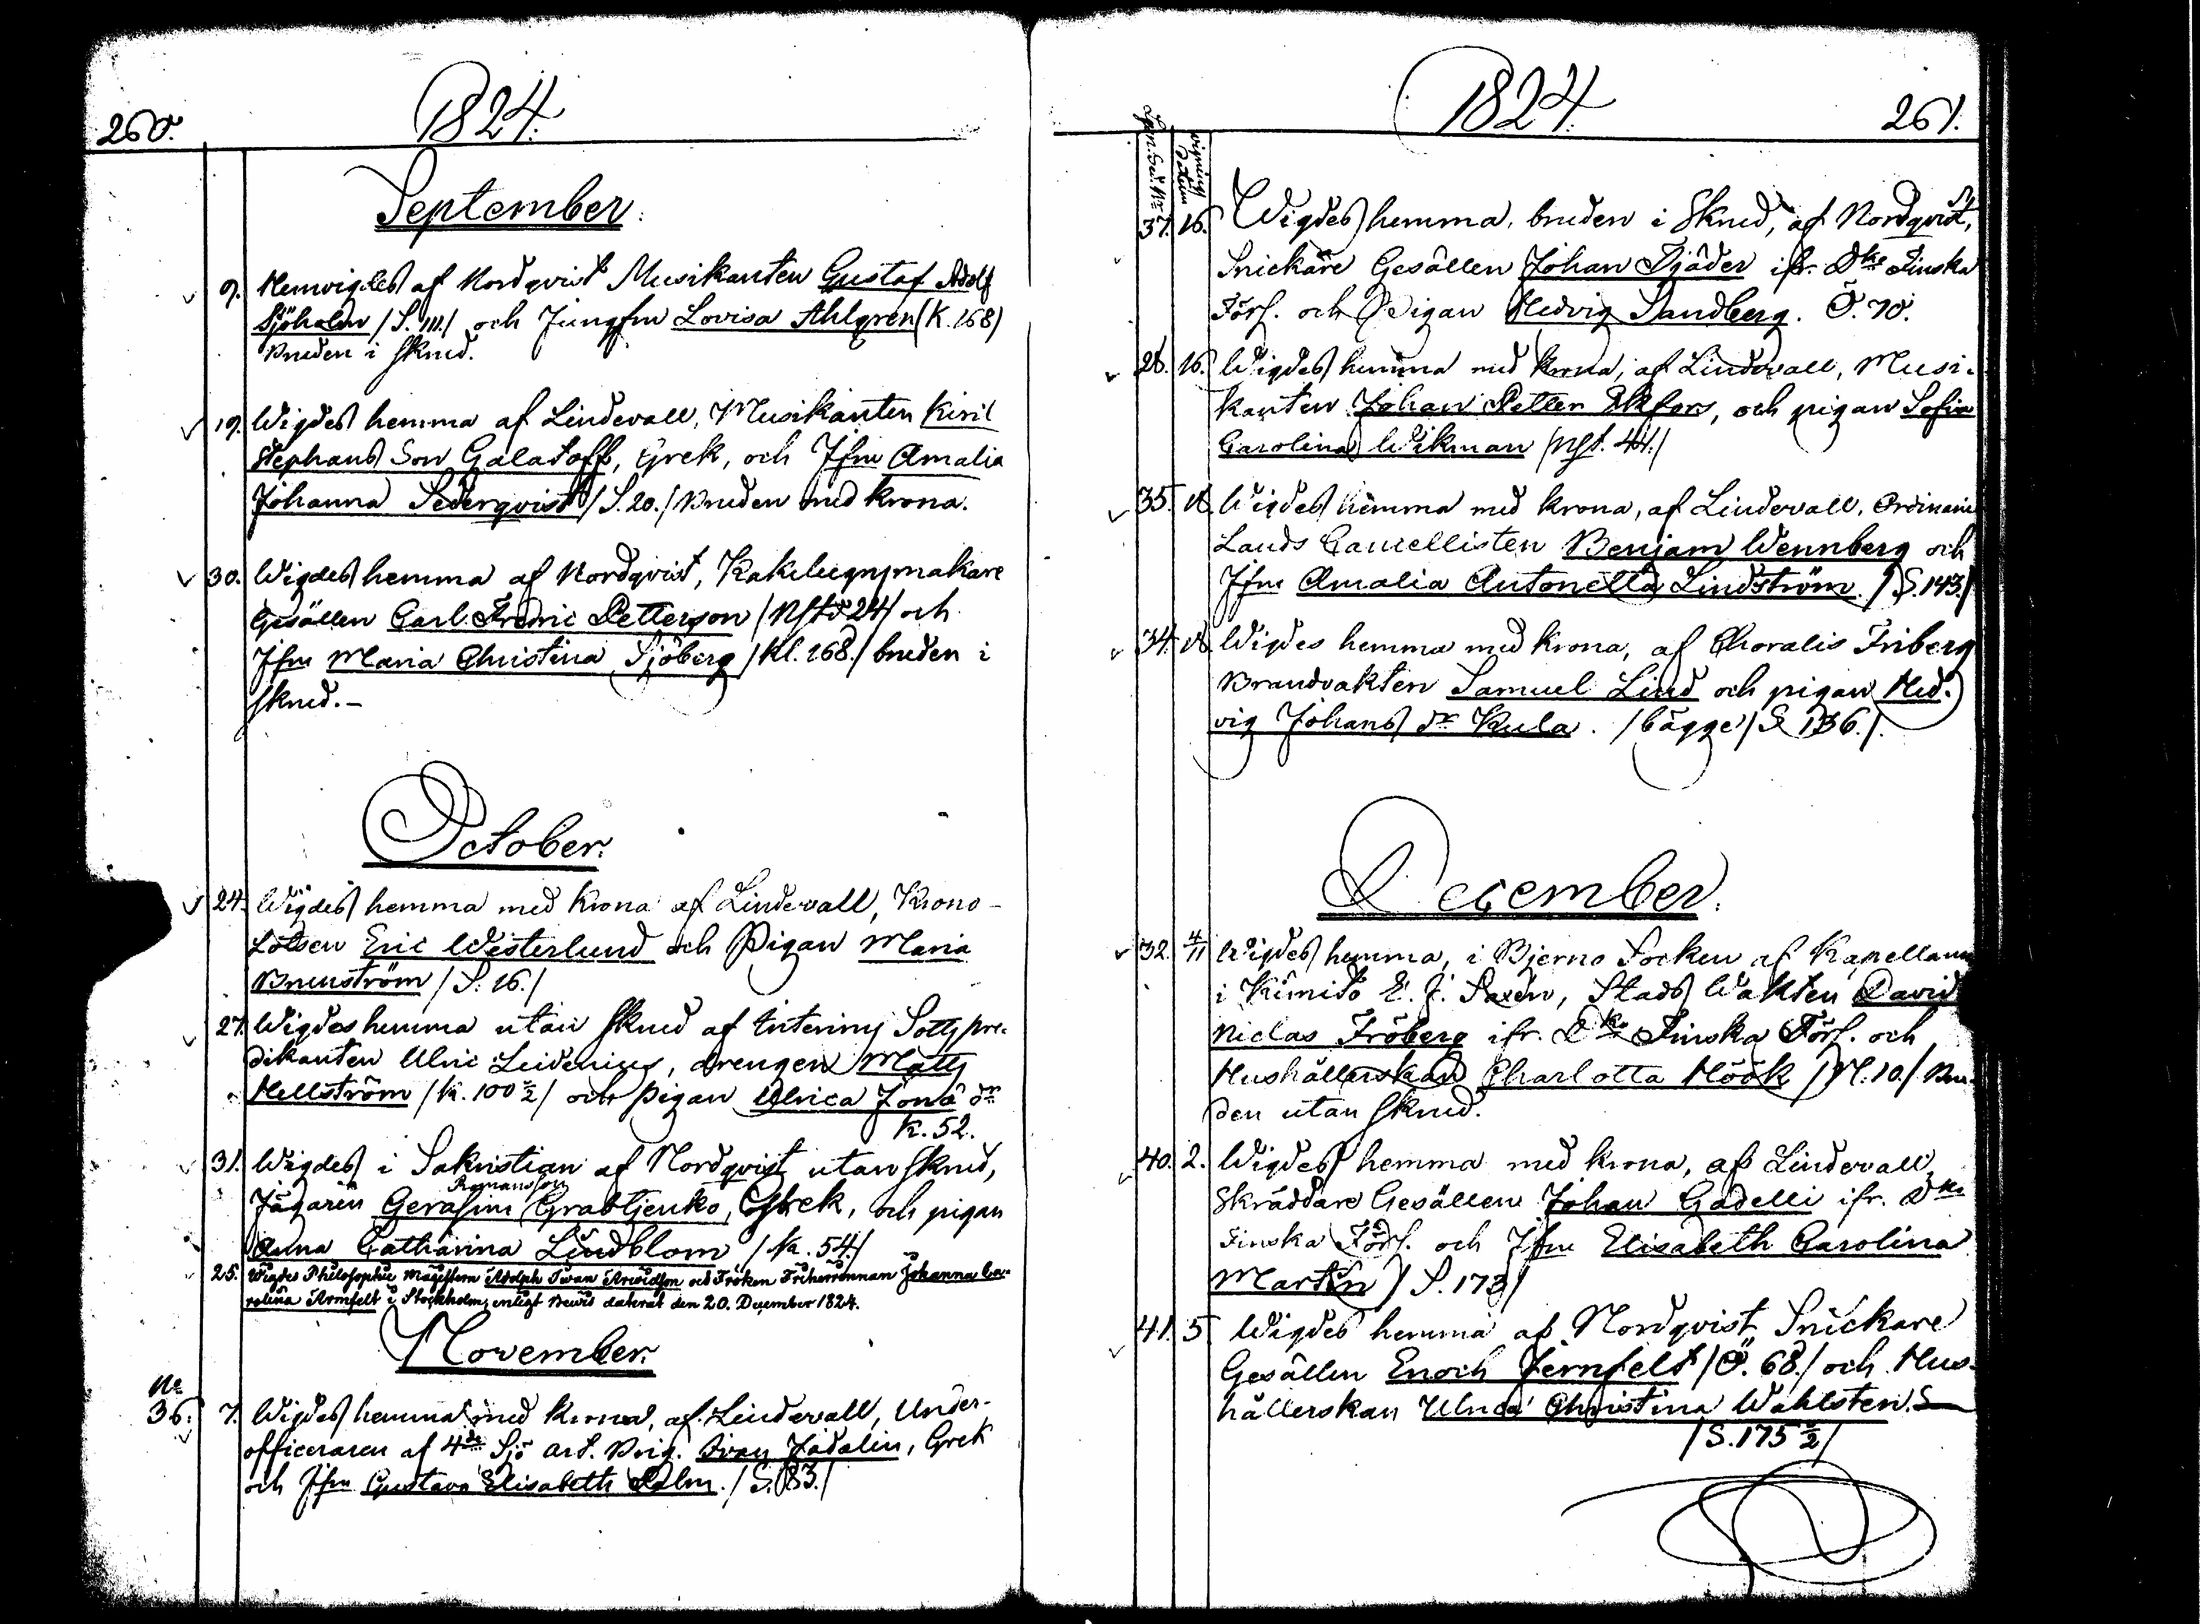 260.
1824.
September.
9. Hemvigdes af Nordqvist Musikanten Gustaf Adolf
Sjöholm /S. 111./ och Jungfru Lovisa Ahlgren (K. 168)
Bruden i skrud.
19. Wigdes hemma af Lindevall, Musikanten Kiril
Stephans Son Galatoff, Grek, och Jfru Amalia
Johanna Sederqvist /S. 20./ Bruden med krona.
30. Wigdes hemma af Nordqvist, Kakelugnsmakare
Gesällen Carl Fredric Petterson /Nst 24/ och
Jfru Maria Christina Sjöberg /Kl. 168./ bruden i
skrud.-
October.
24. Wigdes hemma med krona af Lindevall, Krono-
Lotsen Eric Westerlund och Pigan Maria
Brunström /S. 16./
27. Wigdes hemma utan skrud af Slotts pre-
dikanten Ulric Leidenius, drengen Matts
Hellström /K. 100 1/2/ och Pigan Ulrica Jonæ dr
K. 52.
31. Wigdes i Sakristian af Nordqvist utan skrud,
Romansson
Jägaren Gerasim Grabtjenko, Grek, och pigan
Anna Catharina Lindblom /K. 54./
25. Wigdes Philosophie Magistern Adolph Iwan Arwidsson och Fröken Friherrinnan Johanna Ca-
rolina Armfelt i Stockholm, enligt Bewis daterat den 20. December 1824.
November.
No
36. 7. Wigdes hemma med krona, af Lindevall, Under-
officeraren af 4de Sjö Art. Brig. Ivan Jadalin, Grek
och Jfru Gustava Elisabeth Palm. /S. 83./
1824.
261.
Vigning
datum
37. 16. Wigdes hemma, bruden i Skrud, af Nordqvist,
Snickare Gesällen Johan Djäder ifr. Dke Finska
Förs. och Pigan Hedvig Sandberg. Ö. 70.
26. 16. Wigdes hemma med krona, af Lindevall, Musi-
kanten Johan Petter Ekfors, och pigan Sofia
Carolina Wikman /Nst. 41./
35. Wigdes hemma med krona, af Lindevall, Ordinarie
Lands Cancellisten Benjam Wennberg och
Jfru Amalia Antonetta Lindström /S. 143/
34. Wigdes hemma med krona, af Choralis Friberg
Brandvakten Samuel Lind och pigan Hed-
vig Johans dr Kula. /bägge/ S 136./.
December.
32. 4/11 Wigdes hemma, i Bjerno Socken af Kapellanen
i Kimito E. J. Saxén, Stads Wakten David
Niclas Fröberg ifr. Dke Finska Förs. och
Hushållerskan Charlotta Höök /Kl. 10./ Bru-
den utan skrud.
40. 2. Wigdes hemma med krona, af Lindevall,
Skräddare Gesällen Johan Gadelli ifr. Dke
Finska Förs. och Jfru Elisabeth Carolina
Martin /S. 173/
41. 5 Wigdes hemma af Nordqvist Snickare
Gesällen Enoch Jernfelt /Ö. 68./ och Hus-
hållerskan Ulrica Christina Wahlsten.
/S. 175 1/2/